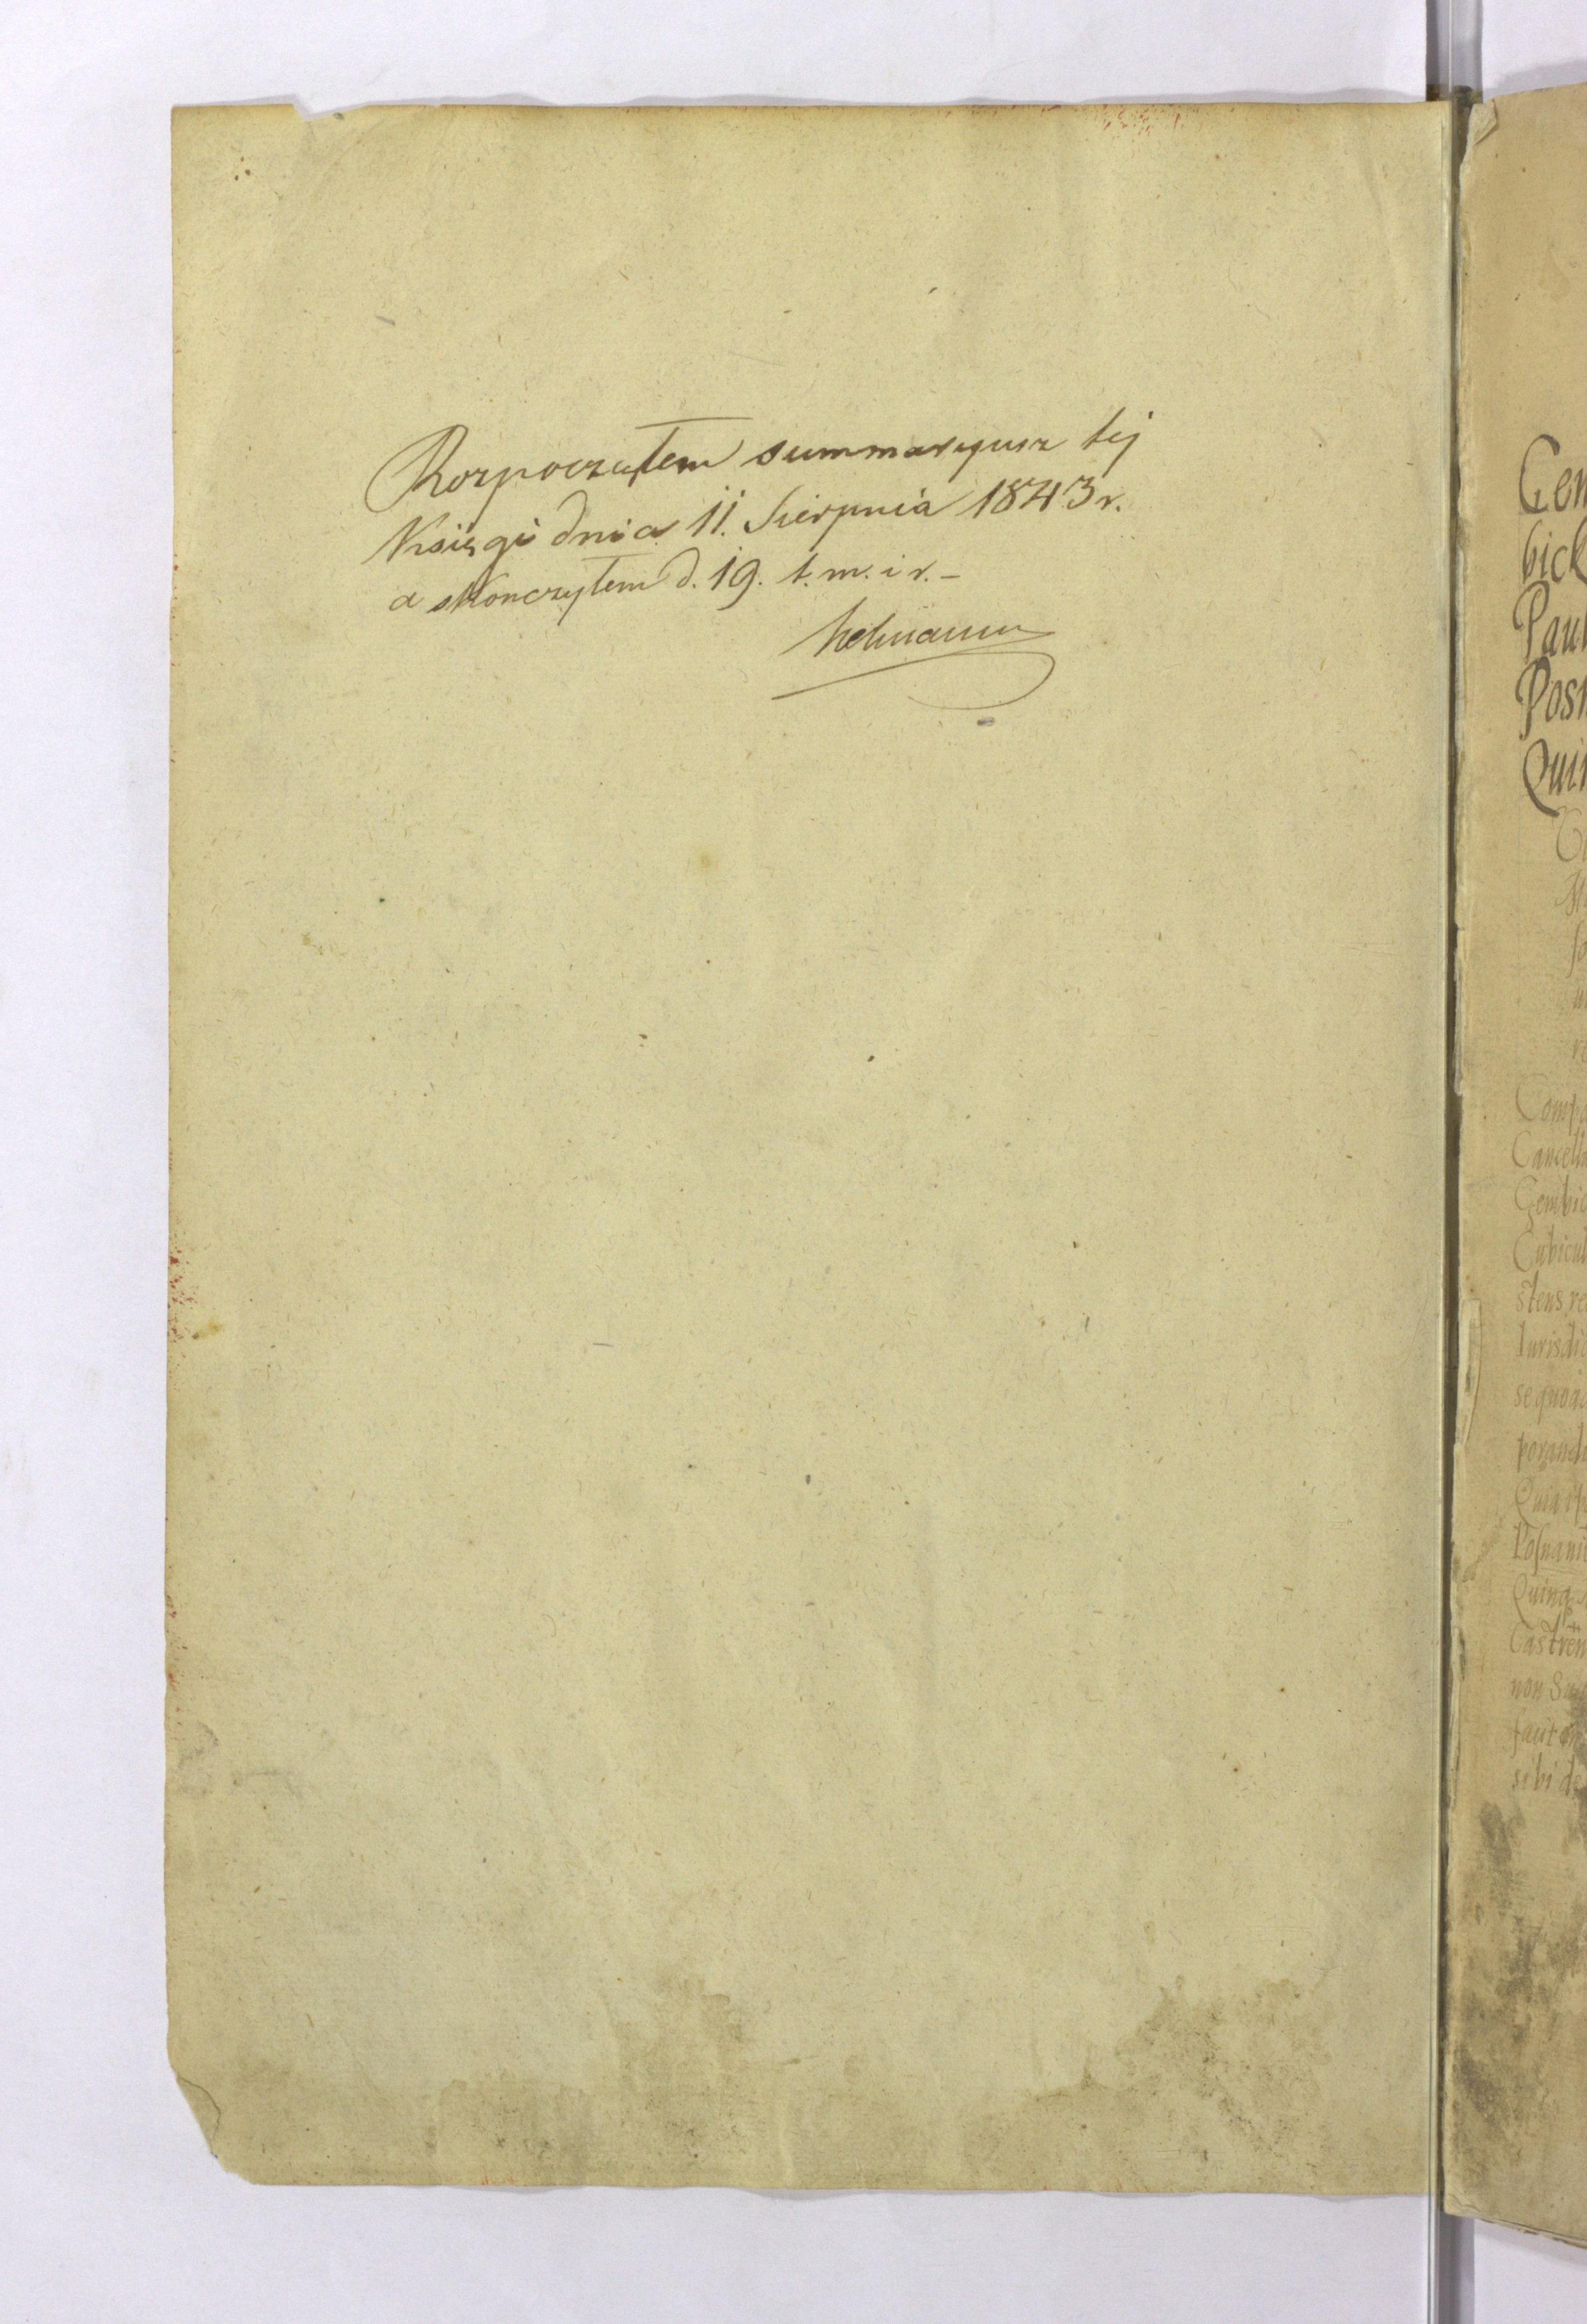 Rozpocząłem summaryusz tej
Księgi dnia 11. Sierpnia 1843 r.
a skonczyłem d. 19. t. m. i r. –
Gem
bick
Pau
Posn
Quin
Comp
Cancell
Gembic
Cubicul
stens re
Iurisdic
se quoq
Posnani
Quinq
Castren
non
sibi de